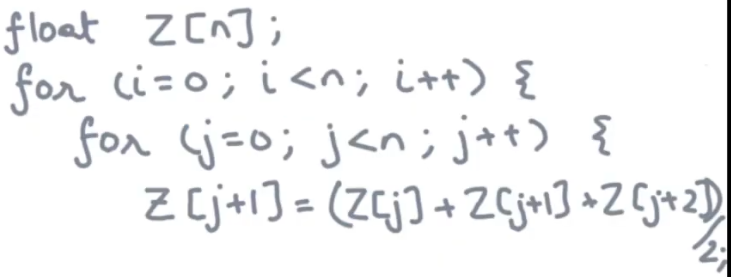 float Z[n];
for (i=0; i<n; i++) {
for (j=0; j<n; j++) {
Z[j+1] = (Z[j] + Z[j+1] + Z[j+2])
/2;